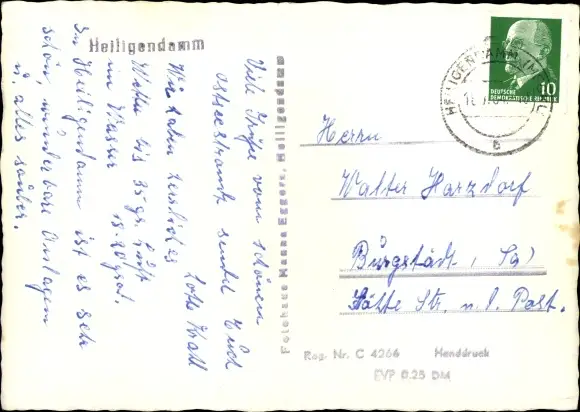 Heiligendamm
Viele Grüße vom schönen
Ostseestrand sendet Euch
Wir haben herrliches Lotte Wall
Wetter bis 35 gr. Luft
im Wasser 18-20 grd.
In Heiligendamm ist es sehr
schön, wunderbare Anlagen
u. alles sauber.
Fotohaus Hanna Eggers Heiligendamm
DEUTSCHE
DEMOKRATISCHE REPUBLIK
10
HEILIGENDAMM
Herrn
Walter Harzdorf
Burgstädt, Sa)
Str. n. d. Post.
Reg. Nr. C 4266 Handdruck
EVP 0.25 DM